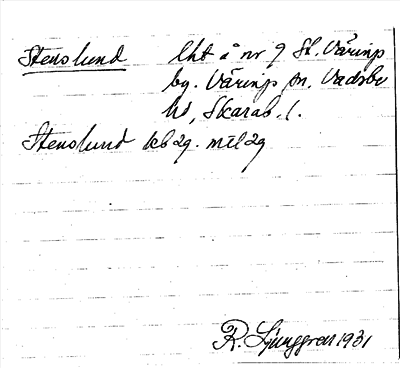 Stenslund lht å nr 9 St. Väring
by. Väring sn. Vadsbo
hd, Skarab. l.
Stenslund kb 29. mtl 29
R. Ljunggren 1931